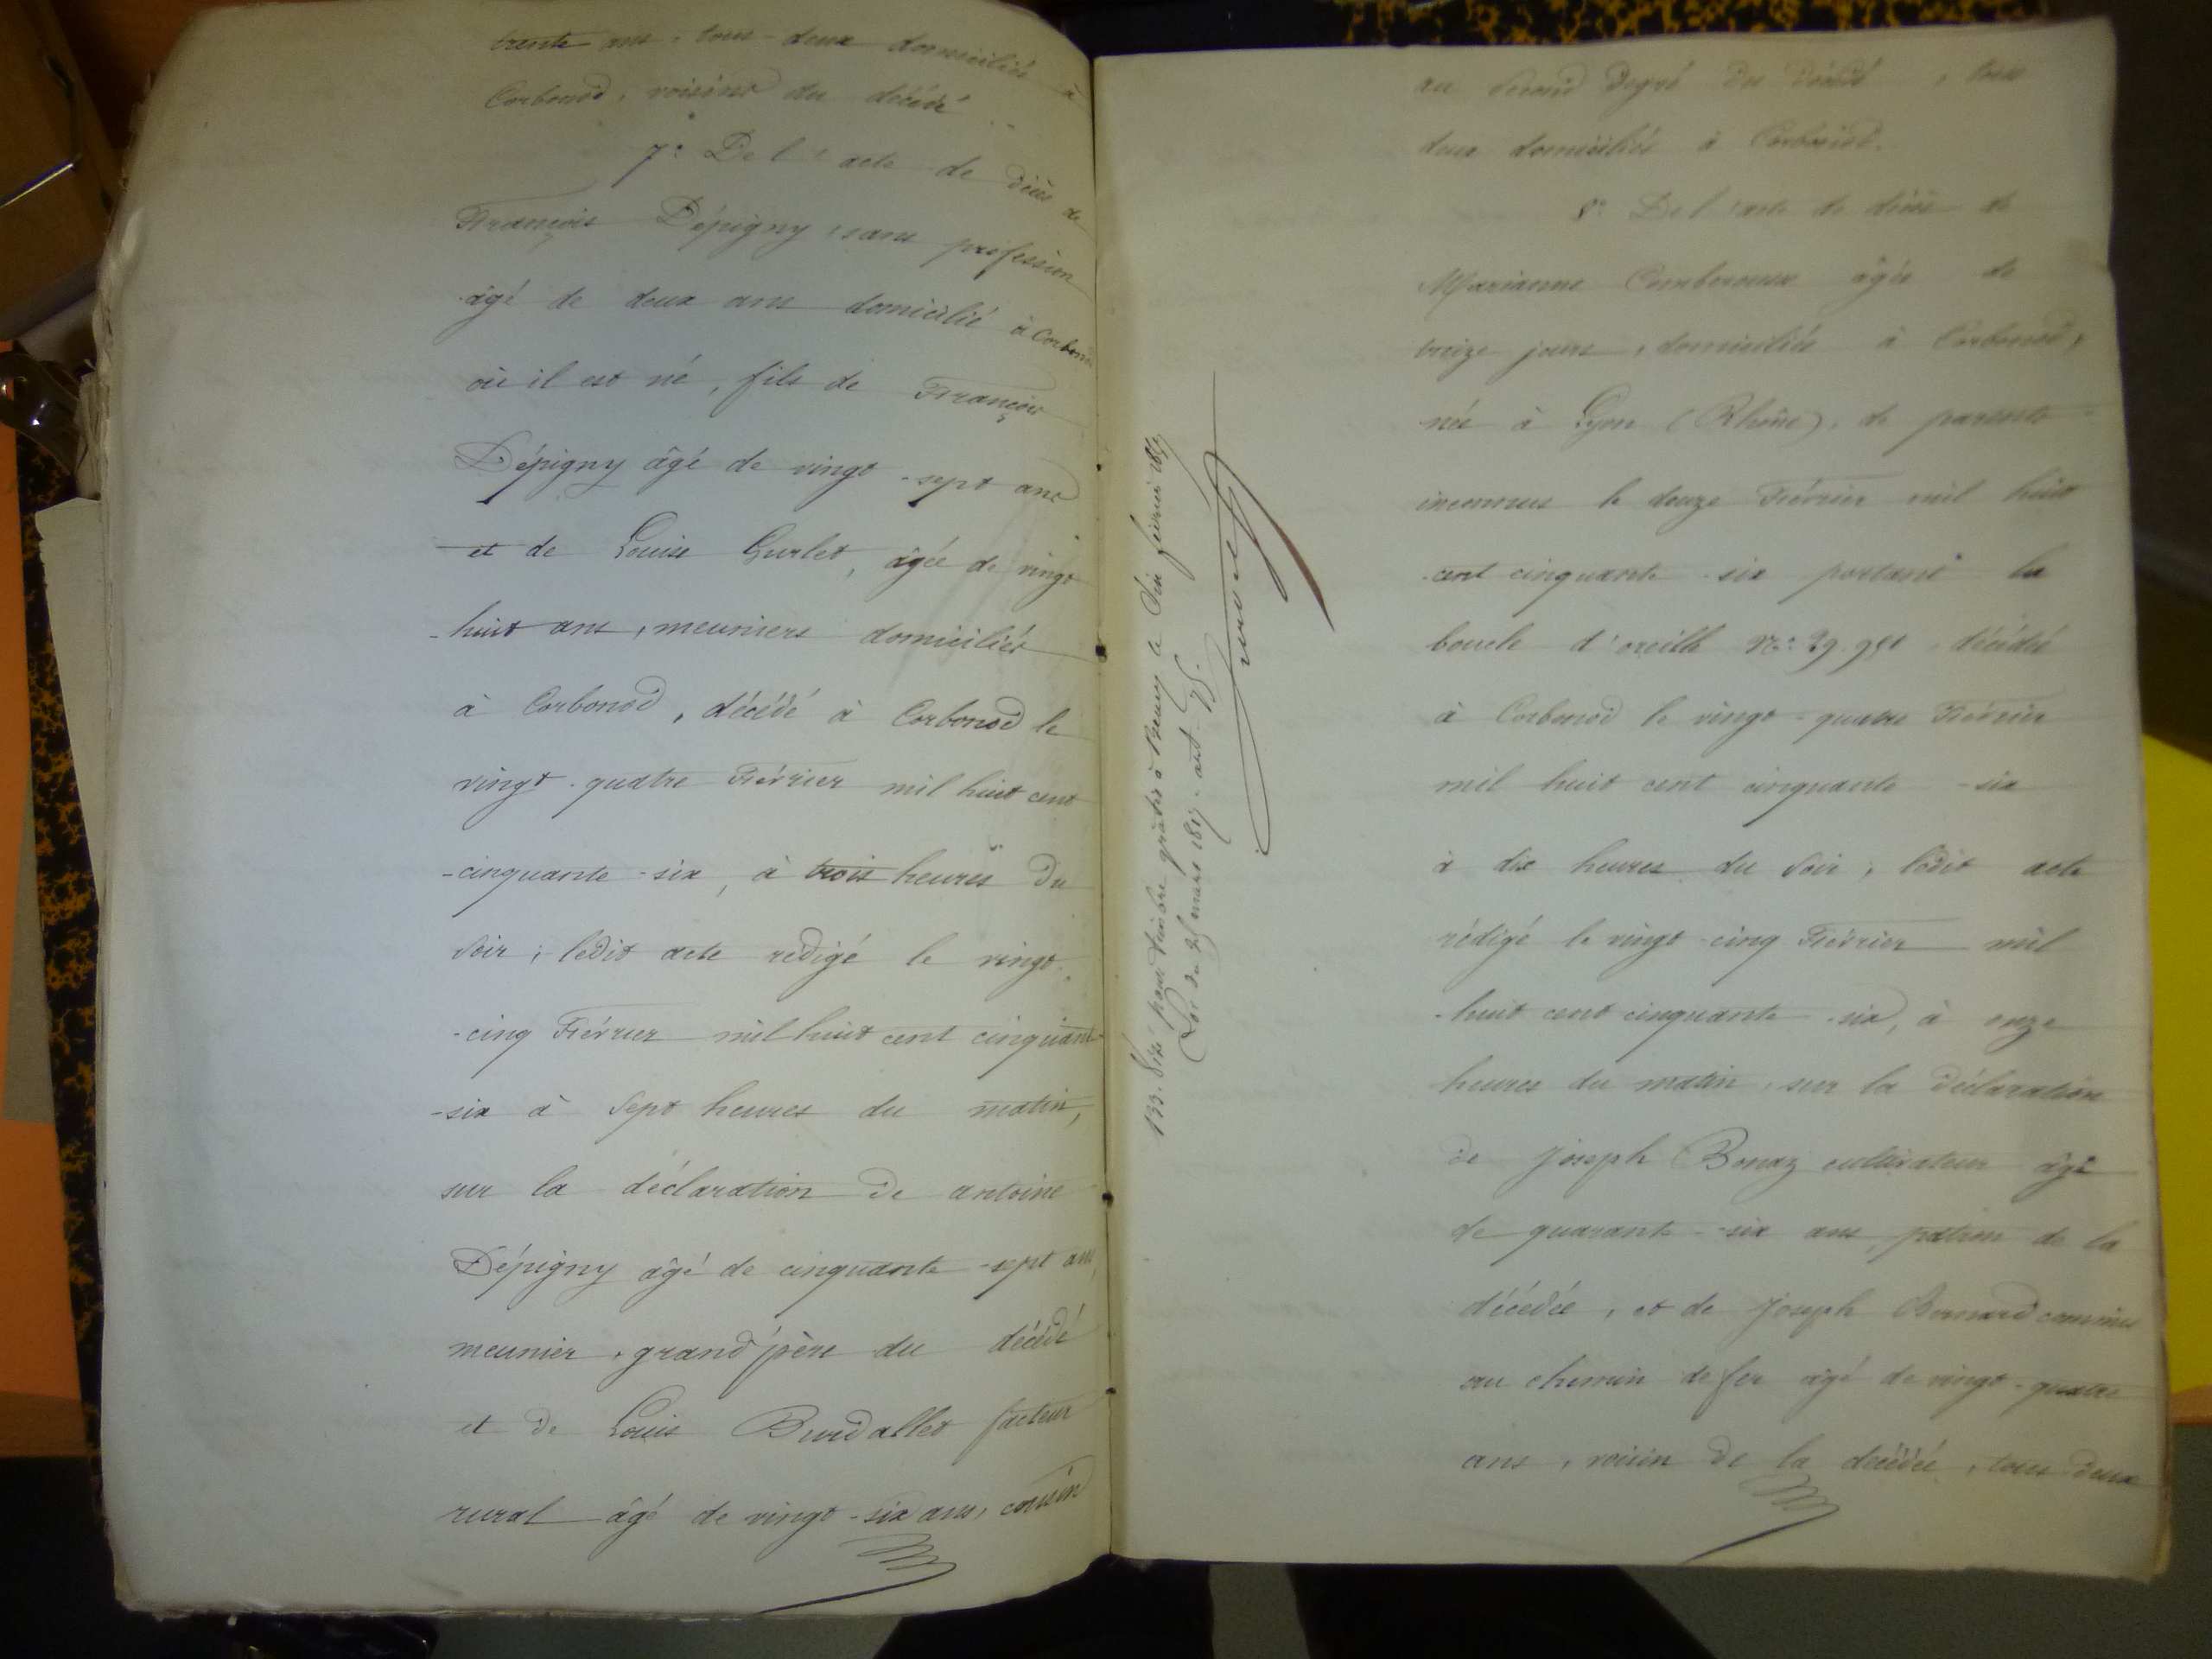 trente ans, tous-deux domiciliés à
Corbonod, voisins du décédé
7° De l'acte de décès de
François Dépigny, sans profession
âgé de deux ans domicilié à Corbonod
où il est né, fils de François
Dépigny âgé de vingt-sept ans
et de Louise Gurlet, âgée de vingt
-huit ans, meuniers domiciliés
à Corbonod, décédé à Corbonod le
vingt-quatre Février mil huit cent
-cinquante-six, à trois heures du
soir; ledit acte rédigé le vingt
-cinq Février mil huit cent cinquante
-six à sept heures du matin,
sur la déclaration de antoine
Dépigny âgé de cinquante-sept ans,
meunier, grand'père du décédé
et de Louis Burdallet facteur
rural âgé de vingt-six ans, cousin
133. Visé pour timbre gratis à Belley le Dix février 1857
Loi du 25 mars 1817. art. 75.
au second degré du décédé, tous
deux domiciliés à Corbonod.
8° De l'acte de décès de
Marianne âgée de
treize jours, domiciliée à Corbonod,
née à Lyon (Rhône), de parents
inconnus le douze Février mil huit
-cent cinquante-six portant la
boucle d'oreille N°: décédée
à Corbonod le vingt-quatre Février
mil huit cent cinquante-six
à dix heures du soir; ledit acte
rédigé le vingt-cinq Février mil
-huit cent cinquante-six, à onze
heures du matin, sur la déclaration
de Joseph Bonaz cultivateur âgé
de quarante-six ans, patron de la
décédée, et de Joseph Bernard commis
au chemin de fer âgé de vingt-quatre
ans, voisin de la décédée, tous deux